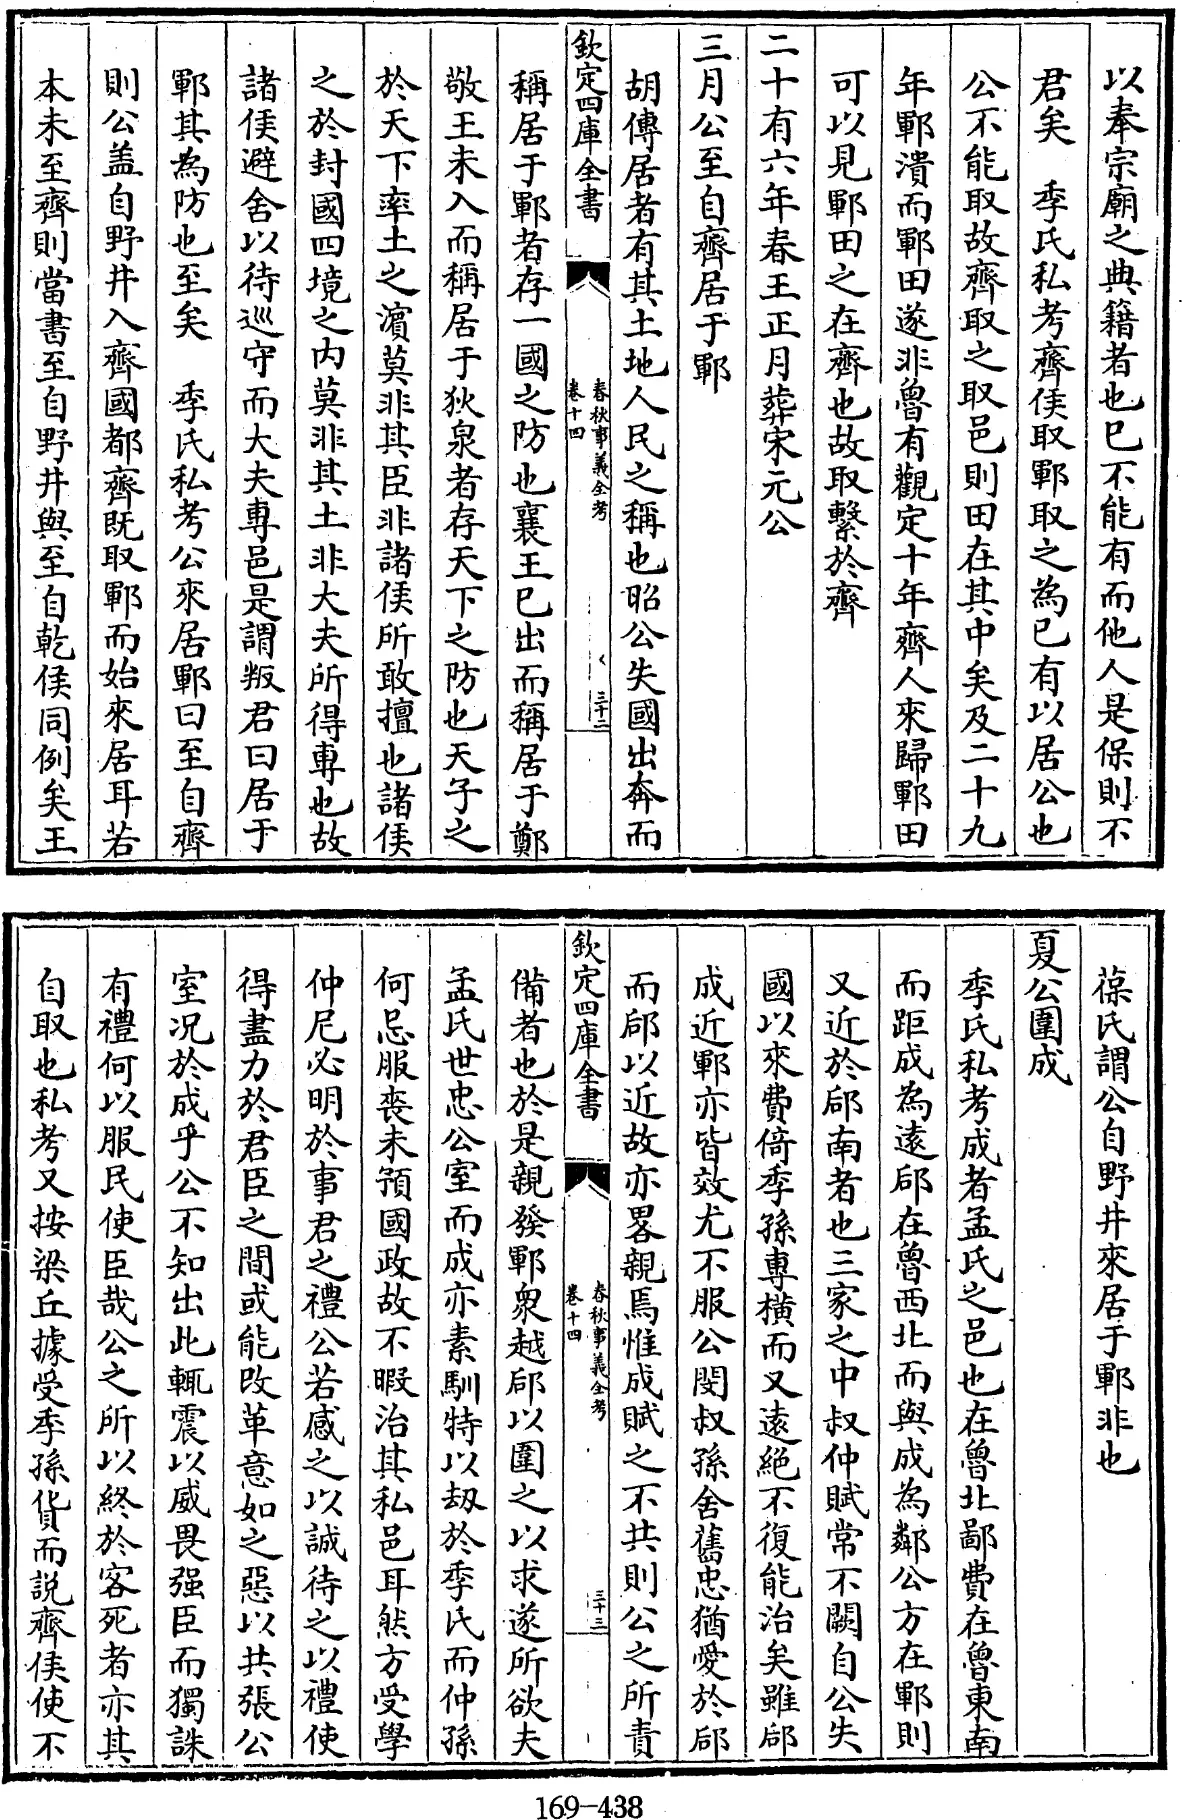 以奉宗廟之典籍者也已不能有而他人是保則不
君矣　季氏私考齊侯取鄆取之為已有以居公也
公不能取故齊取之取邑則田在其中矣及二十九
年鄆潰而鄆田遂非魯有觀定十年齊人來歸鄆田
可以見鄆田之在齊也故取繫於齊
二十有六年春王正月葬宋元公
三月公至自齊居于鄆
胡傳居者有其土地人民之稱也昭公失國出奔而
欽定四庫全書
春秋事義全考
卷十四
三十二
稱居于鄆者存一國之防也襄王已出而稱居于鄭
敬王未入而稱居于狄泉者存天下之防也天子之
於天下率土之濱莫非其臣非諸侯所敢擅也諸侯
之於封國四境之内莫非其土非大夫所得専也故
諸侯避舍以待巡守而大夫専邑是謂叛君曰居于
鄆其為防也至矣　季氏私考公來居鄆曰至自齊
則公盖自野井入齊國都齊既取鄆而始來居耳若
本未至齊則當書至自野井與至自乾侯同例矣王
葆氏謂公自野井來居于鄆非也
夏公圍成
季氏私考成者孟氏之邑也在魯北鄙費在魯東南
而距成為遠郈在魯西北而與成為鄰公方在鄆則
又近於郈南者也三家之中叔仲賦常不闕自公失
國以來費倚季孫專橫而又遠絶不復能治矣雖郈
成近鄆亦皆效尤不服公閔叔孫舍舊忠猶愛於郈
而郈以近故亦畧親焉惟成賦之不共則公之所責
欽定四庫全書
春秋事義全考
卷十四
三十三
備者也於是親發鄆衆越郈以圍之以求遂所欲夫
孟氏世忠公室而成亦素馴特以刼於季氏而仲孫
何忌服喪未預國政故不暇治其私邑耳然方受學
仲尼必明於事君之禮公若感之以誠待之以禮使
得盡力於君臣之間或能改革意如之惡以共張公
室况於成乎公不知出此輒震以威畏强臣而獨誅
有禮何以服民使臣哉公之所以終於客死者亦其
自取也私考又按梁丘據受季孫貨而説齊侯使不
169-438